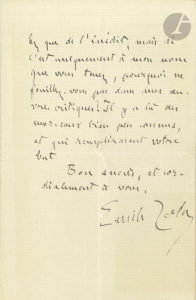 que de l'inédit, mais si
c'est uniquement à mon nom
que vous tenez, pourquoi ne
fouillez-vous pas dans mes œu-
vres critiques? Il y a là des
morceaux bien peu connus,
et qui rempliraient votre
but.
Bon succès, et cor-
dialement à vous,
Emile Zola